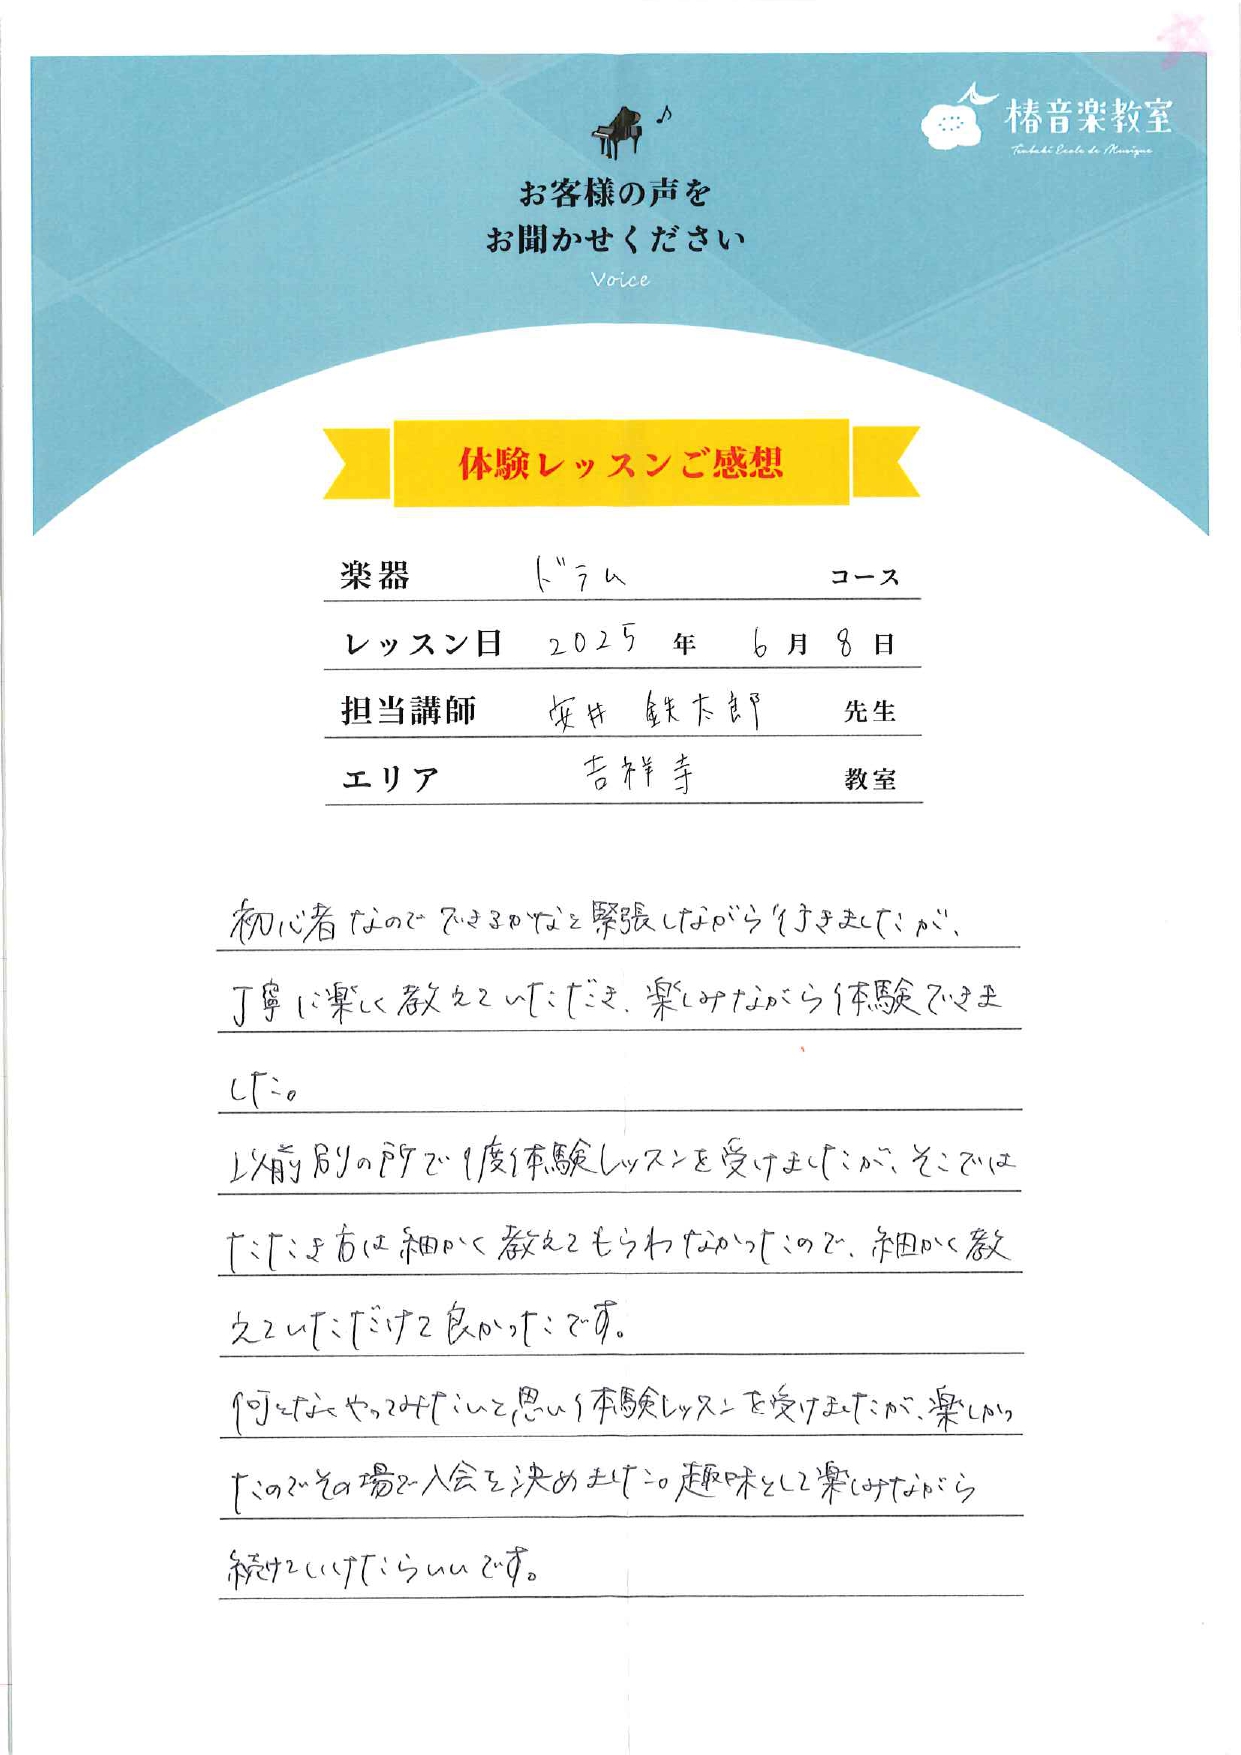 椿音楽教室
Tsubaki Ecole de Musique
お客様の声を
お聞かせください
Voice
体験レッスンご感想
楽器 ドラム コース
レッスン日 2025 年 6 月 8 日
担当講師 安井 鉄太郎 先生
エリア 吉祥寺 教室
初心者なのでできるかなと緊張しながら行きましたが、
丁寧に楽しく教えていただき、楽しみながら体験できま
した。
以前別の所で1度体験レッスンを受けましたが、そこでは
たたき方は細かく教えてもらわなかったので、細かく教
えていただけて良かったです。
何となくやってみたいと思い体験レッスンを受けましたが、楽しかっ
たのでその場で入会を決めました。趣味として楽しみながら
続けていけたらいいです。